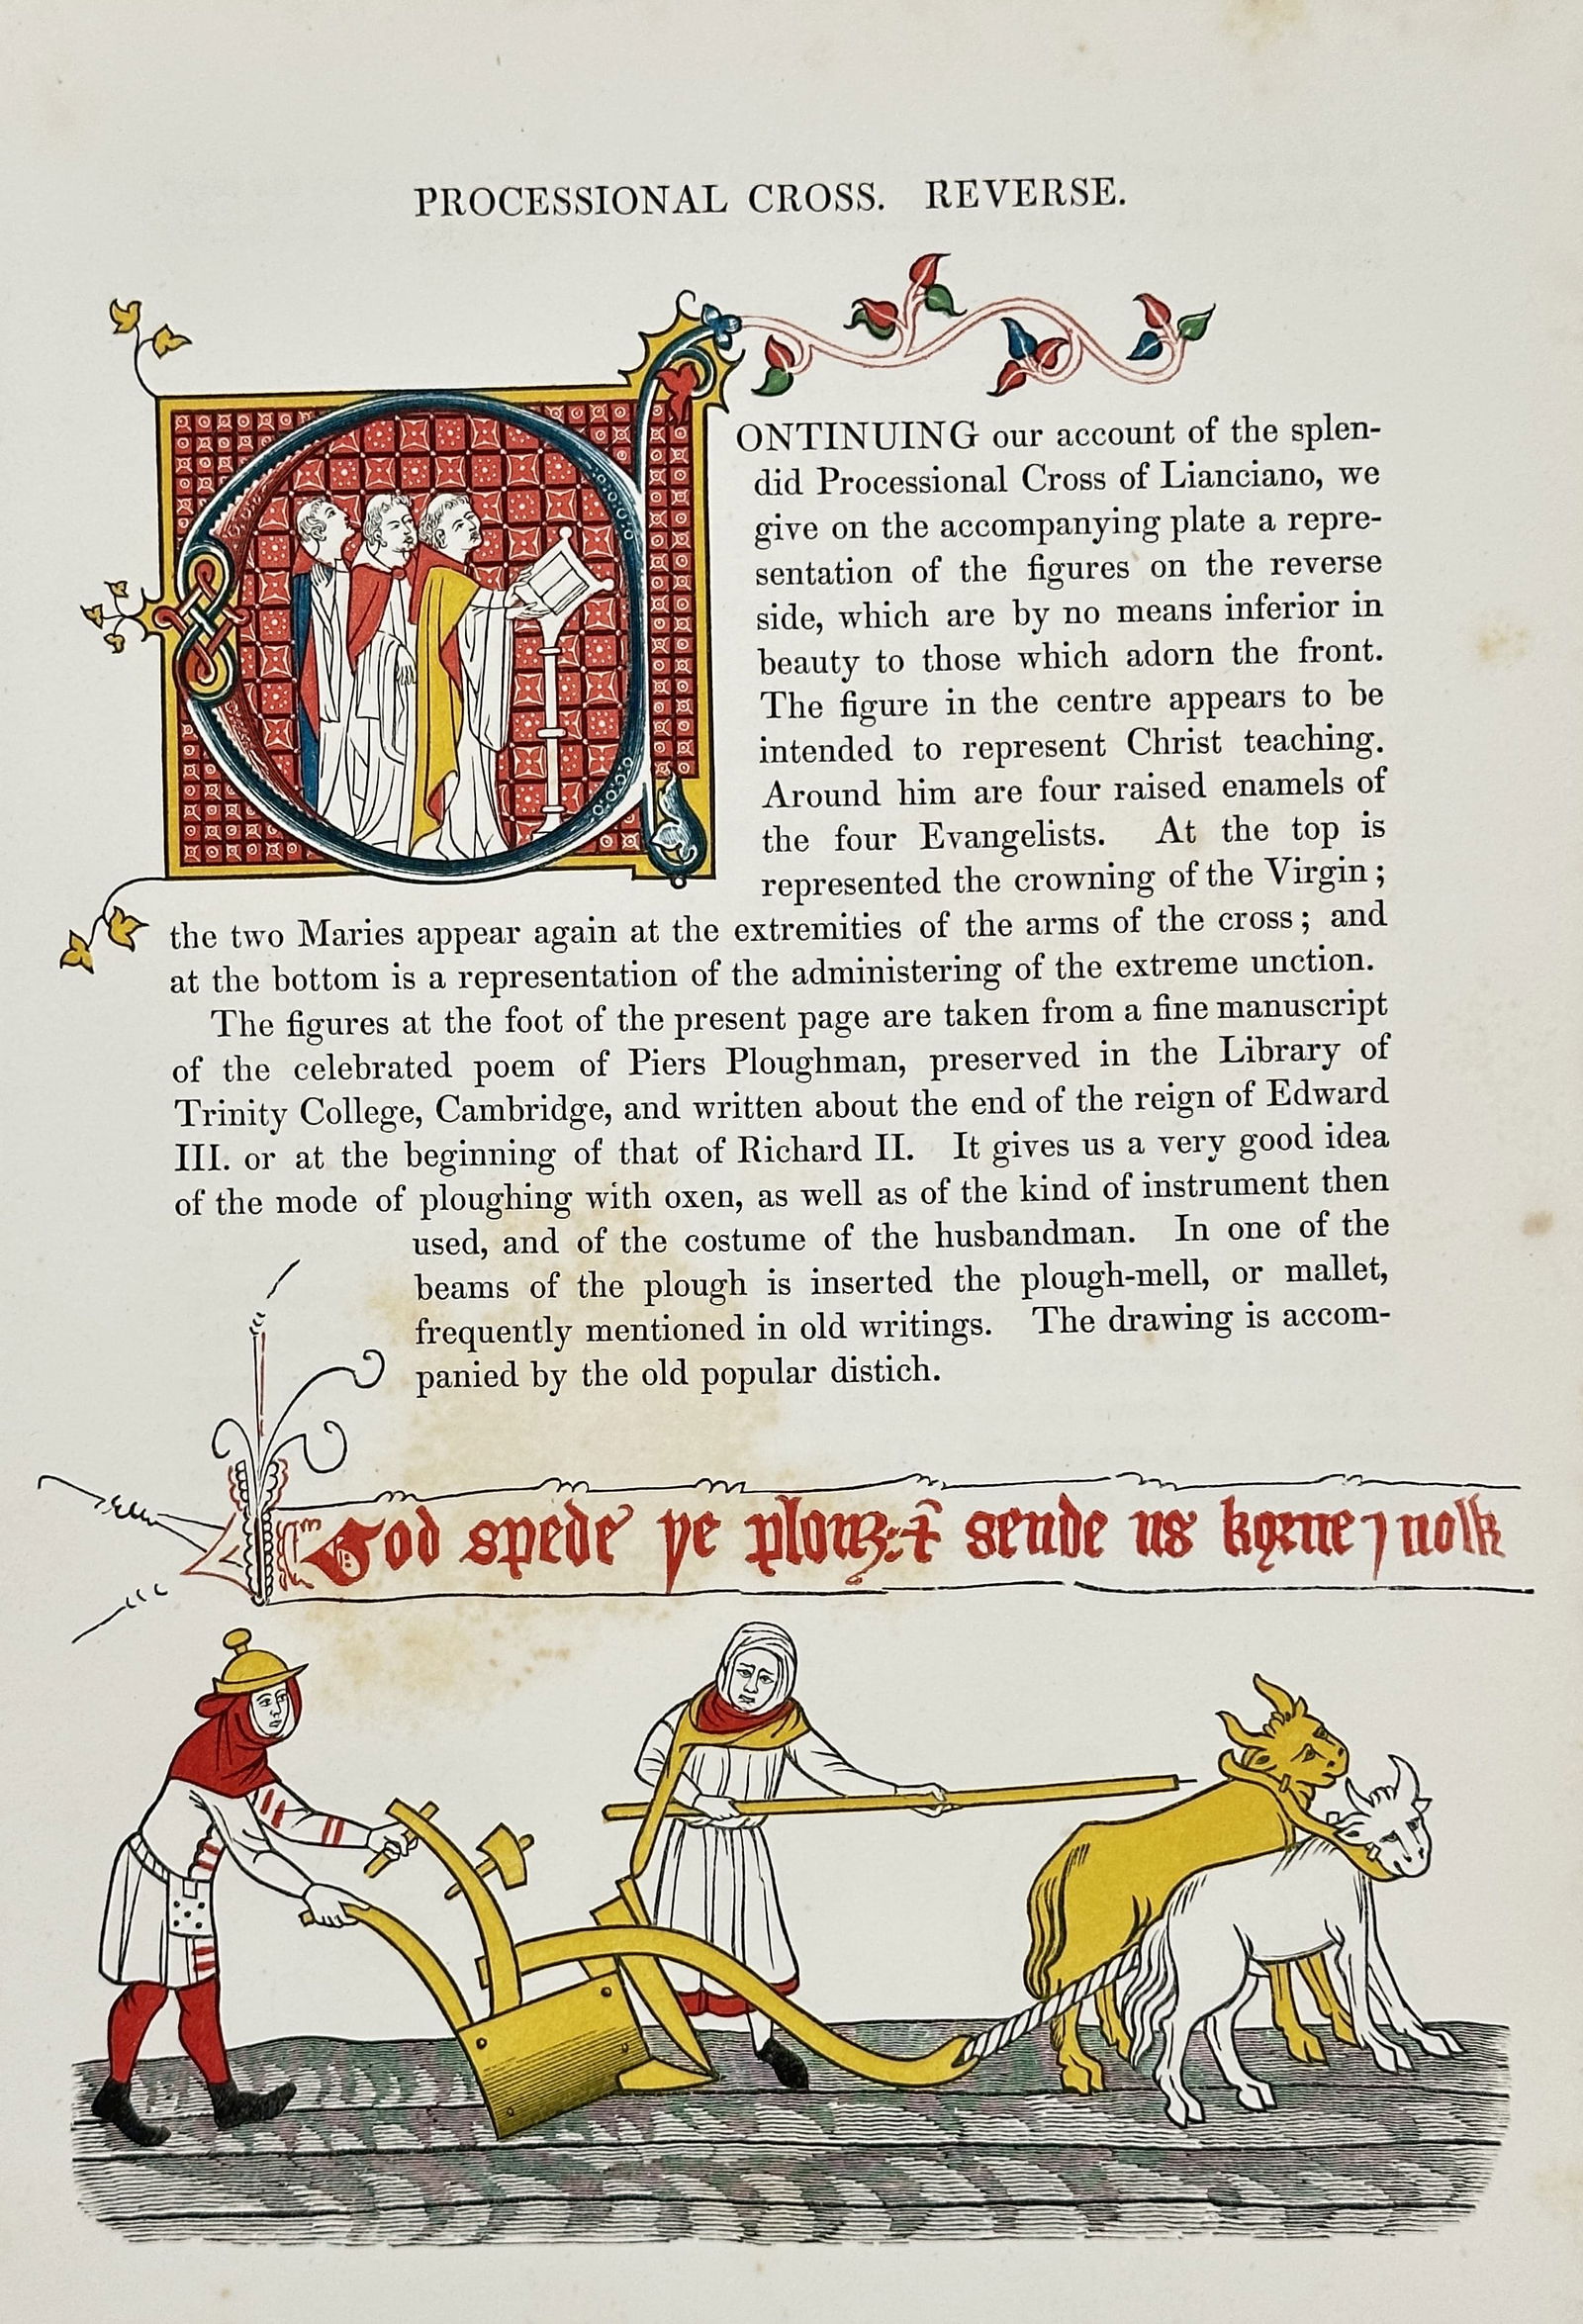 PROCESSIONAL CROSS. REVERSE.
CONTINUING our account of the splen-
did Processional Cross of Lianciano, we
give on the accompanying plate a repre-
sentation of the figures on the reverse
side, which are by no means inferior in
beauty to those which adorn the front.
The figure in the centre appears to be
intended to represent Christ teaching.
Around him are four raised enamels of
the four Evangelists. At the top is
represented the crowning of the Virgin;
the two Maries appear again at the extremities of the arms of the cross; and
at the bottom is a representation of the administering of the extreme unction.
The figures at the foot of the present page are taken from a fine manuscript
of the celebrated poem of Piers Ploughman, preserved in the Library of
Trinity College, Cambridge, and written about the end of the reign of Edward
III. or at the beginning of that of Richard II. It gives us a very good idea
of the mode of ploughing with oxen, as well as of the kind of instrument then
used, and of the costume of the husbandman. In one of the
beams of the plough is inserted the plough-mell, or mallet,
frequently mentioned in old writings. The drawing is accom-
panied by the old popular distich.
God spede ye plouȝ: ⁊ sende us korne